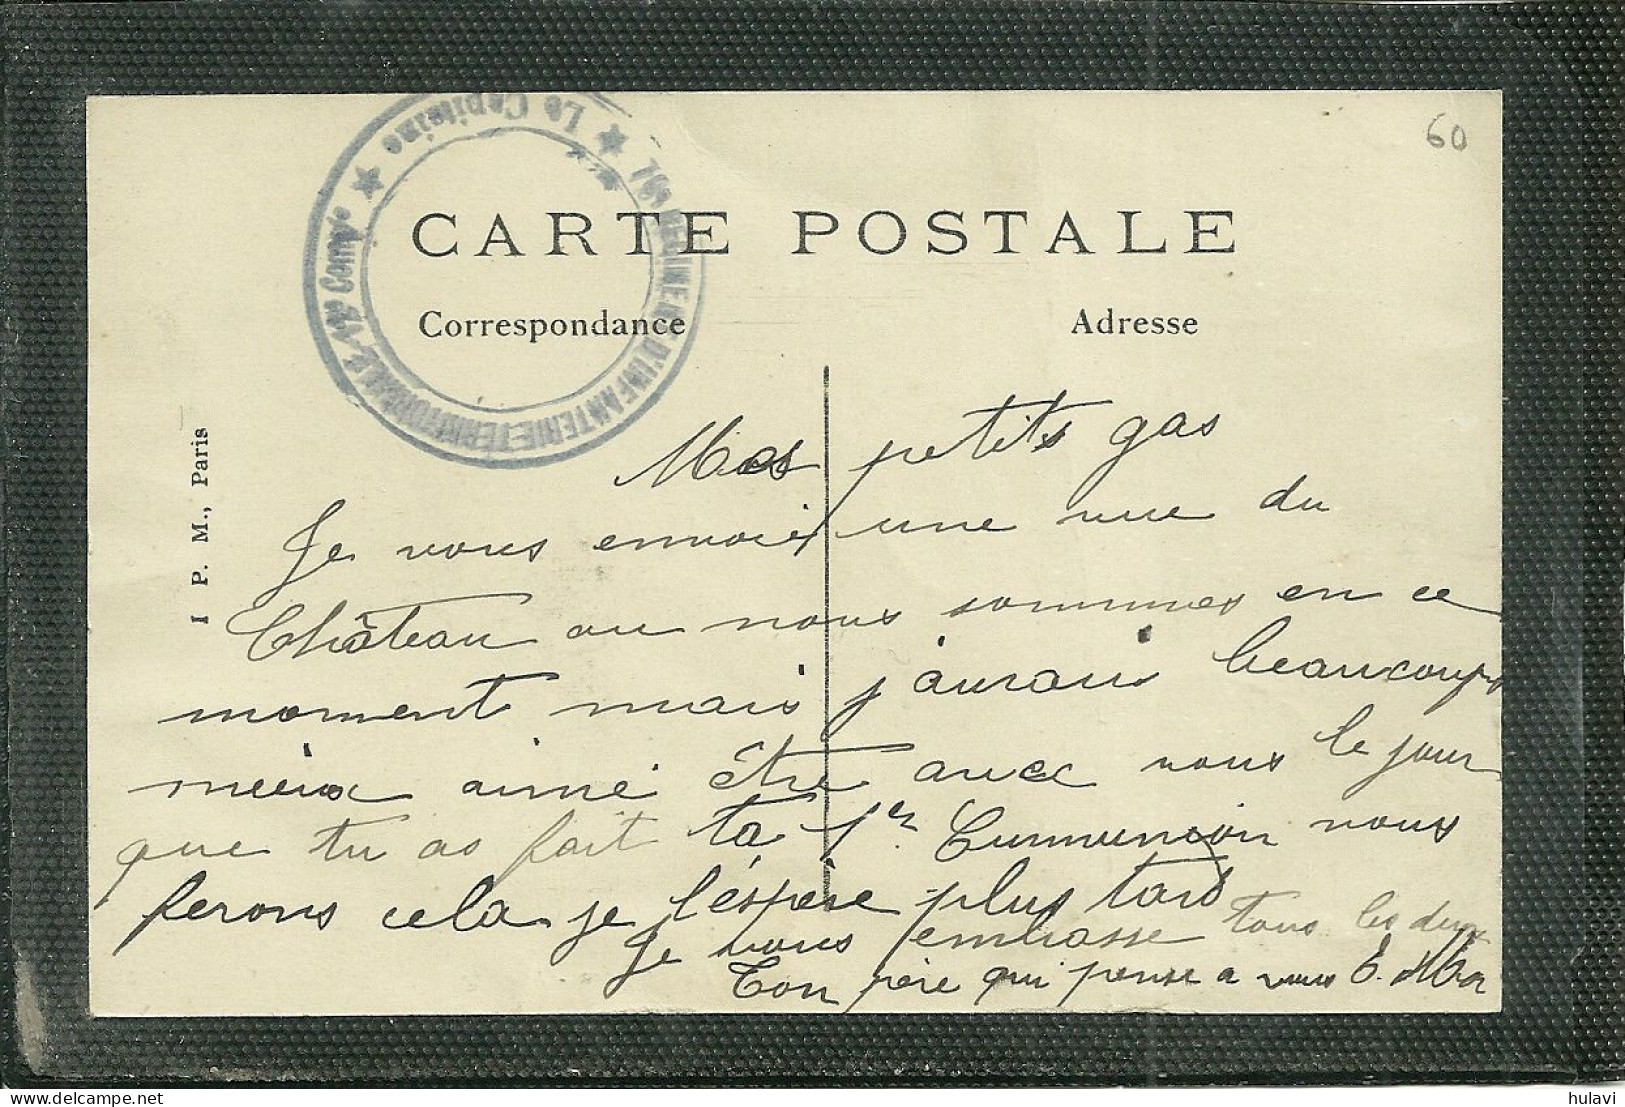 60
★ Le Capitaine ★
RÉGIMENT D'INFANTERIE TERRITORIALE
12e Compie
CARTE POSTALE
Correspondance
Adresse
I P. M., Paris
Mes petits gas
Je vous envoie une vue du
Château ou nous sommes en ce
moment mais j'aurais beaucoup
mieux aimé être avec vous le jour
que tu as fait ta 1er Cummunion nous
ferons cela je l'espère plus tard
Je vous embrasse tous les deux
Ton père qui pense a vous E.
hulavi